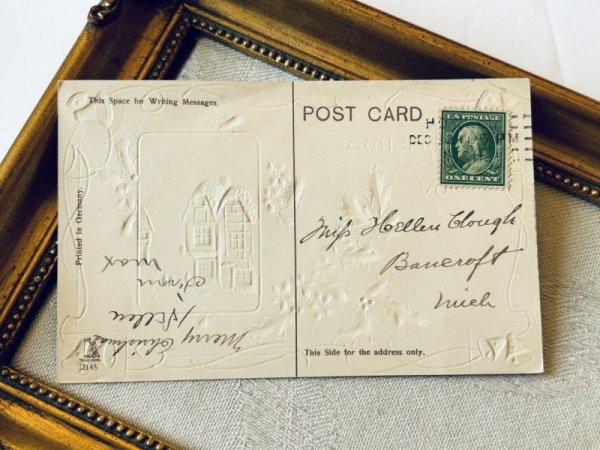 This Space for Writing Messages.
Printed in Germany.
Merry Christmas
Hellen
from
Max
2145
POST CARD
DEC PM
U.S. POSTAGE
ONE CENT
Miss Hellen Clough
Bancroft
Mich
This Side for the address only.